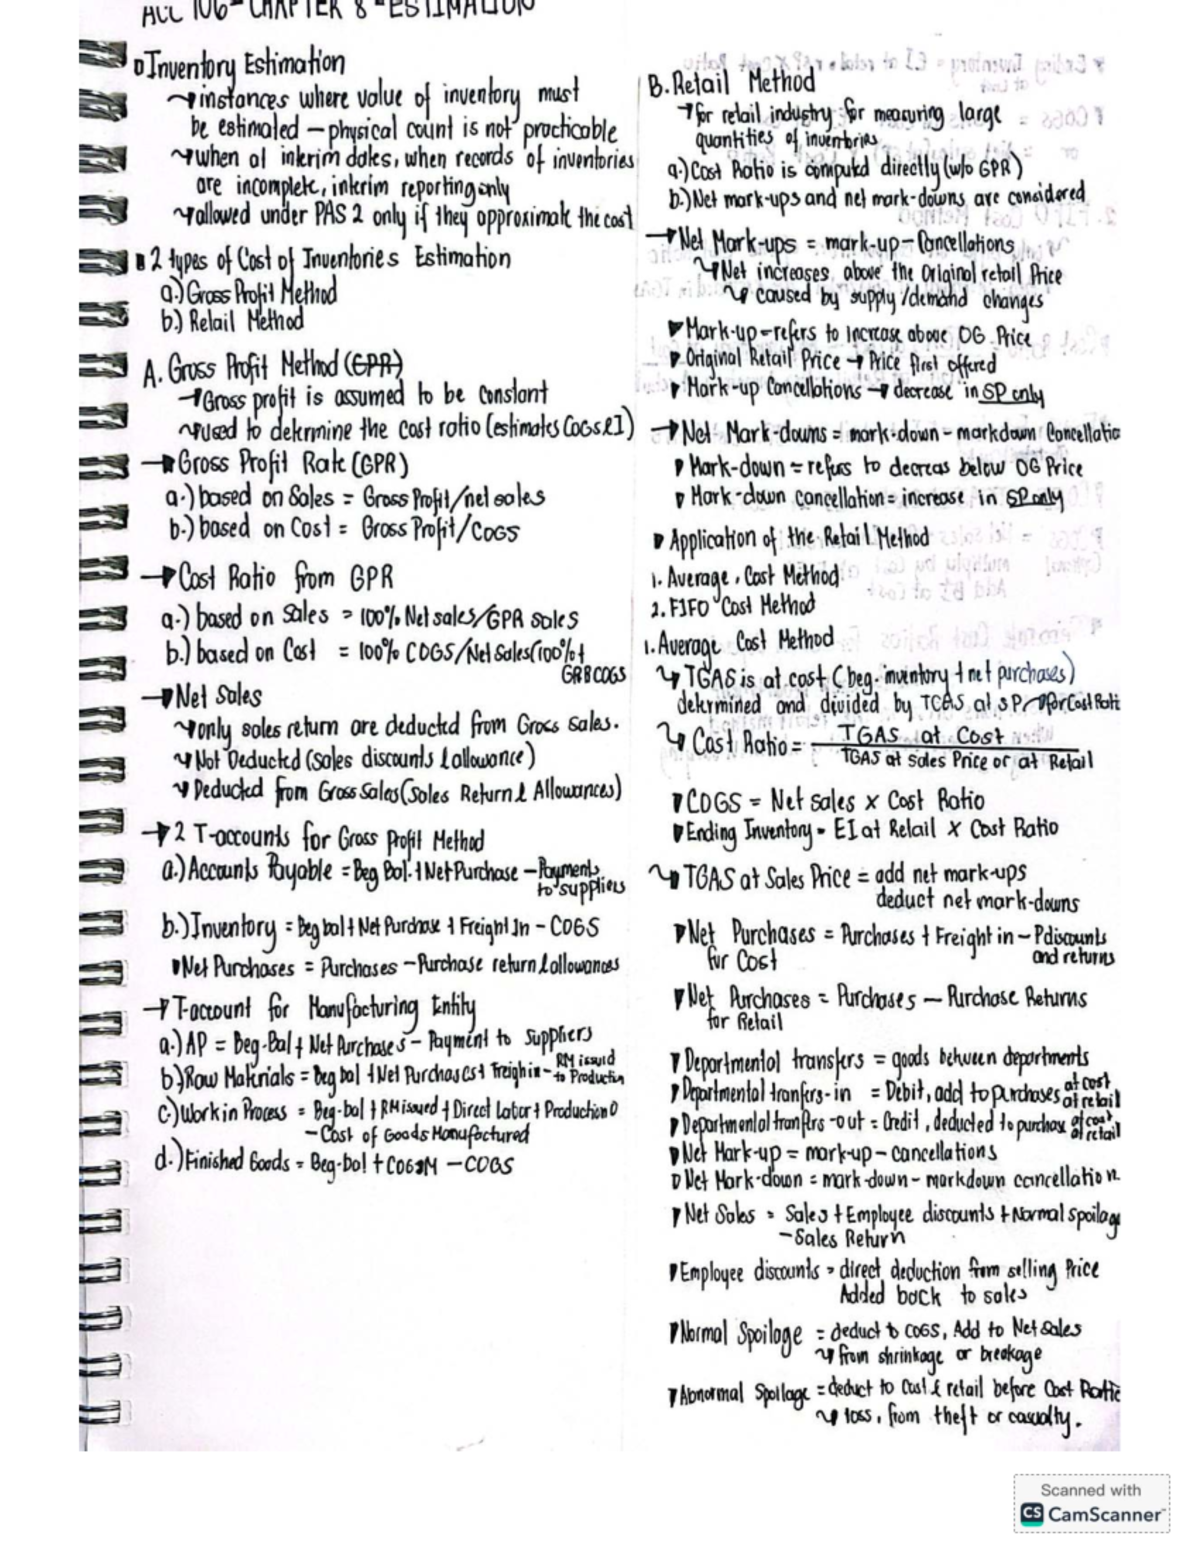 ACC 106 - CHAPTER 8 - ESTIMATION
Inventory Estimation
instances where value of inventory must
be estimated - physical count is not practicable
when at interim dates, when records of inventories
are incomplete, interim reporting only
allowed under PAS 2 only if they approximate the cost
2 types of Cost of Inventories Estimation
a.) Gross Profit Method
b.) Retail Method
A. Gross Profit Method (GPR)
Gross profit is assumed to be constant
used to determine the cost ratio (estimates COGS & EI)
Gross Profit Rate (GPR)
a.) based on Sales = Gross Profit/net sales
b.) based on Cost = Gross Profit/COGS
Cost Ratio from GPR
a.) based on Sales = 100% Net sales/GPR sales
b.) based on Cost = 100% COGS/Net Sales (100% +
GRBCOGS
Net Sales
only sales return are deducted from Gross sales.
Not Deducted (sales discounts & allowance)
Deducted from Gross Sales (Sales Return & Allowances)
2 T-accounts for Gross Profit Method
a.) Accounts Payable = Beg Bal. + Net Purchase - Payments
to suppliers
b.) Inventory = Beg bal + Net Purchase + Freight In - COGS
Net Purchases = Purchases - Purchase return & allowances
T-account for Manufacturing Entity
a.) AP = Beg-Bal + Net Purchases - Payment to Suppliers
b.) Raw Materials = Beg bal + Net Purchases + Freight in - RM issued
to Production
c.) Work in Process = Beg-bal + RM issued + Direct Labor + Production O
- Cost of Goods Manufactured
d.) Finished Goods = Beg-bal + COGM - COGS
B. Retail Method
for retail industry for measuring large
quantities of inventories
a.) Cost Ratio is computed directly (w/o GPR)
b.) Net mark-ups and net mark-downs are considered
Net Mark-ups = mark-up - Cancellations
Net increases above the Original retail Price
caused by supply/demand changes
Mark-up - refers to increase above OG Price
Original Retail Price → Price first offered
Mark-up Cancellations → decrease in SP only
Net Mark-downs = mark-down - markdown Cancellatio
Mark-down = refers to decreas below OG Price
Mark-down cancellation = increase in SP only
Application of the Retail Method
1. Average Cost Method
2. FIFO Cost Method
1. Average Cost Method
TGAS is at cost (beg. inventory + net purchases)
determined and divided by TGAS at SP for Cost Rati
Cost Ratio = TGAS at Cost
TGAS at Sales Price or at Retail
COGS = Net sales x Cost Ratio
Ending Inventory = EI at Retail x Cost Ratio
TGAS at Sales Price = add net mark-ups
deduct net mark-downs
Net Purchases = Purchases + Freight in - P discounts
for Cost and returns
Net Purchases = Purchases - Purchase Returns
for Retail
Departmental transfers = goods between departments
Departmental tranfers-in = Debit, add to purchases at cost
at retail
Departmental tranfers-out = Credit, deducted to purchase at cost
at retail
Net Mark-up = mark-up - cancellations
Net Mark-down = mark-down - markdown cancellation
Net Sales = Sales + Employee discounts + Normal spoilag
- Sales Return
Employee discounts = direct deduction from selling Price
Added back to sales
Normal Spoilage = deduct to COGS, Add to Net Sales
from shrinkage or breakage
Abnormal Spoilage = deduct to Cost & retail before Cost Ratio
loss, from theft or casualty.
Scanned with
CS CamScanner